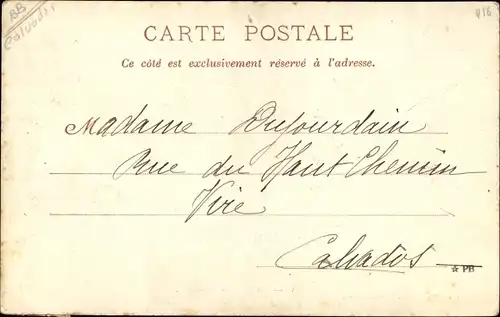 BB
Calvados
416
CARTE POSTALE
Ce côté est exclusivement réservé à l'adresse.
Madame Dujourdain
Rue du Haut Chemin
Vire
Calvados
☆ PB